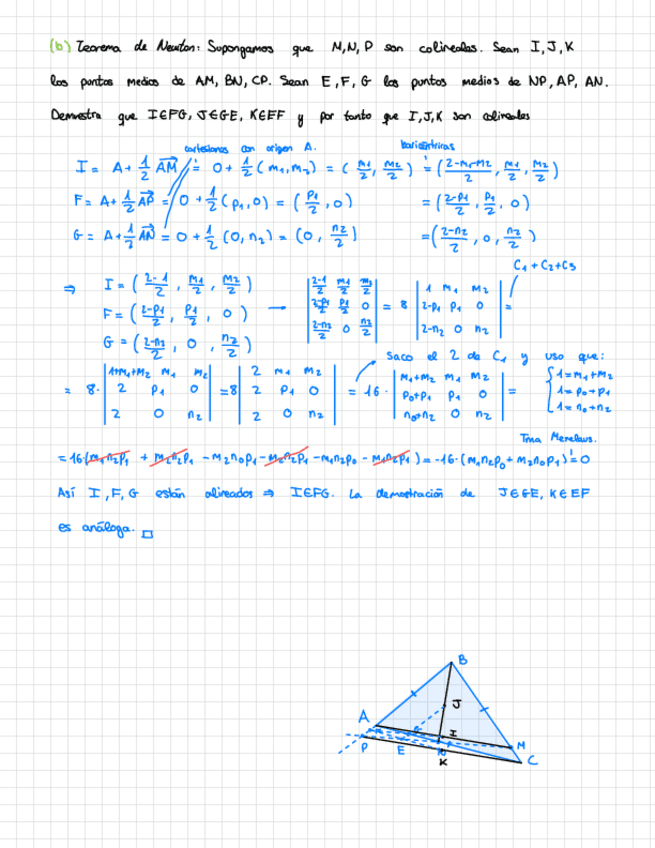 (b) Teorema de Newton: Supongamos que M,N,P son colineales. Sean I,J,K
los puntos medios de AM, BN, CP. Sean E,F,G los puntos medios de NP, AP, AN.
Demuestra que I∈FG, J∈GE, K∈EF y por tanto que I,J,K son colineales
cartesianas con origen A. baricéntricas
I = A + 1/2 AM = 0 + 1/2 (m1, m2) = (m1/2, m2/2) = (2-m1-m2/2, m1/2, m2/2)
F = A + 1/2 AP = 0 + 1/2 (p1, 0) = (p1/2, 0) = (2-p1/2, p1/2, 0)
G = A + 1/2 AN = 0 + 1/2 (0, n2) = (0, n2/2) = (2-n2/2, 0, n2/2)
C1 + C2 + C3
⇒ I = (2-1/2, m1/2, m2/2)
F = (2-p1/2, p1/2, 0) → |2-1/2 m1/2 m2/2; 2-p1/2 p1/2 0; 2-n2/2 0 n2/2| = 8 |1 m1 m2; 2-p1 p1 0; 2-n2 0 n2| =
G = (2-n2/2, 0, n2/2)
Saco el 2 de C1 y uso que:
= 8· |1+m1+m2 m1 m2; 2 p1 0; 2 0 n2| = 8 |2 m1 m2; 2 p1 0; 2 0 n2| = 16· |m1+m2 m1 m2; p0+p1 p1 0; n0+n2 0 n2| = {1=m1+m2 1=p0+p1 1=n0+n2
Tma Menelaus.
= 16(m1n2p1 + m2n2p1 - m2n0p1 - m2n2p1 - m1n2p0 - m1n2p1) = -16·(m1n2p0 + m2n0p1) = 0
Así I,F,G están alineados ⇒ I∈FG. La demostración de J∈GE, K∈EF
es análoga. □
B
J
A
I
P
E
M
K
C